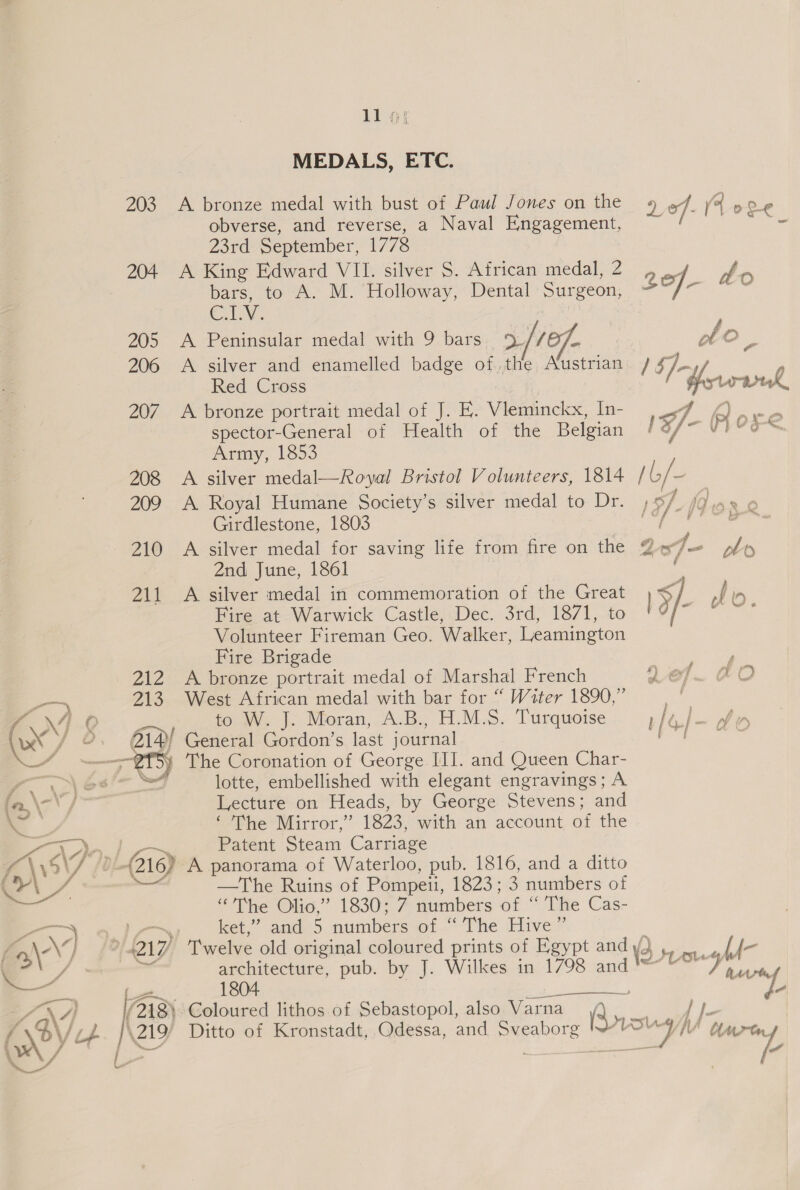 11
MEDALS, ETC.
203 A bronze medal with bust of Paul Jones on the
obverse, and reverse, a Naval Engagement,
23rd September, 1778
204 A King Edward VII. silver S. African medal, 2
bars, to A. M. Holloway, Dental Surgeon,
C.I.V.
20/- do
205 A Peninsular medal with 9 bars
do
206 A silver and enamelled badge of the Austrian
Red Cross
15/-
207 A bronze portrait medal of J. E. Vleminckx, In-
spector-General of Health of the Belgian
Army, 1853
208 A silver medal—Royal Bristol Volunteers, 1814
16/-
209 A Royal Humane Society's silver medal to Dr.
Girdlestone, 1803
210 A silver medal for saving life from fire on the
2nd June, 1861
20/- do
211 A silver medal in commemoration of the Great
Fire at Warwick Castle, Dec. 3rd, 1871, to
Volunteer Fireman Geo. Walker, Leamington
Fire Brigade
15/- do.
212 A bronze portrait medal of Marshal French
do
213 West African medal with bar for “ Witer 1890,”
to W. J. Moran, A.B., H.M.S. Turquoise
do
214 General Gordon's last journal
215 The Coronation of George III. and Queen Char-
lotte, embellished with elegant engravings; A
Lecture on Heads, by George Stevens; and
‘ The Mirror,” 1823, with an account of the
Patent Steam Carriage
216 A panorama of Waterloo, pub. 1816, and a ditto
—The Ruins of Pompeii, 1823; 3 numbers of
“ The Olio,” 1830; 7 numbers of “ The Cas-
ket,” and 5 numbers of “ The Hive ”
217 Twelve old original coloured prints of Egypt and
architecture, pub. by J. Wilkes in 1798 and
1804
218 Coloured lithos of Sebastopol, also Varna
219 Ditto of Kronstadt, Odessa, and Sveaborg